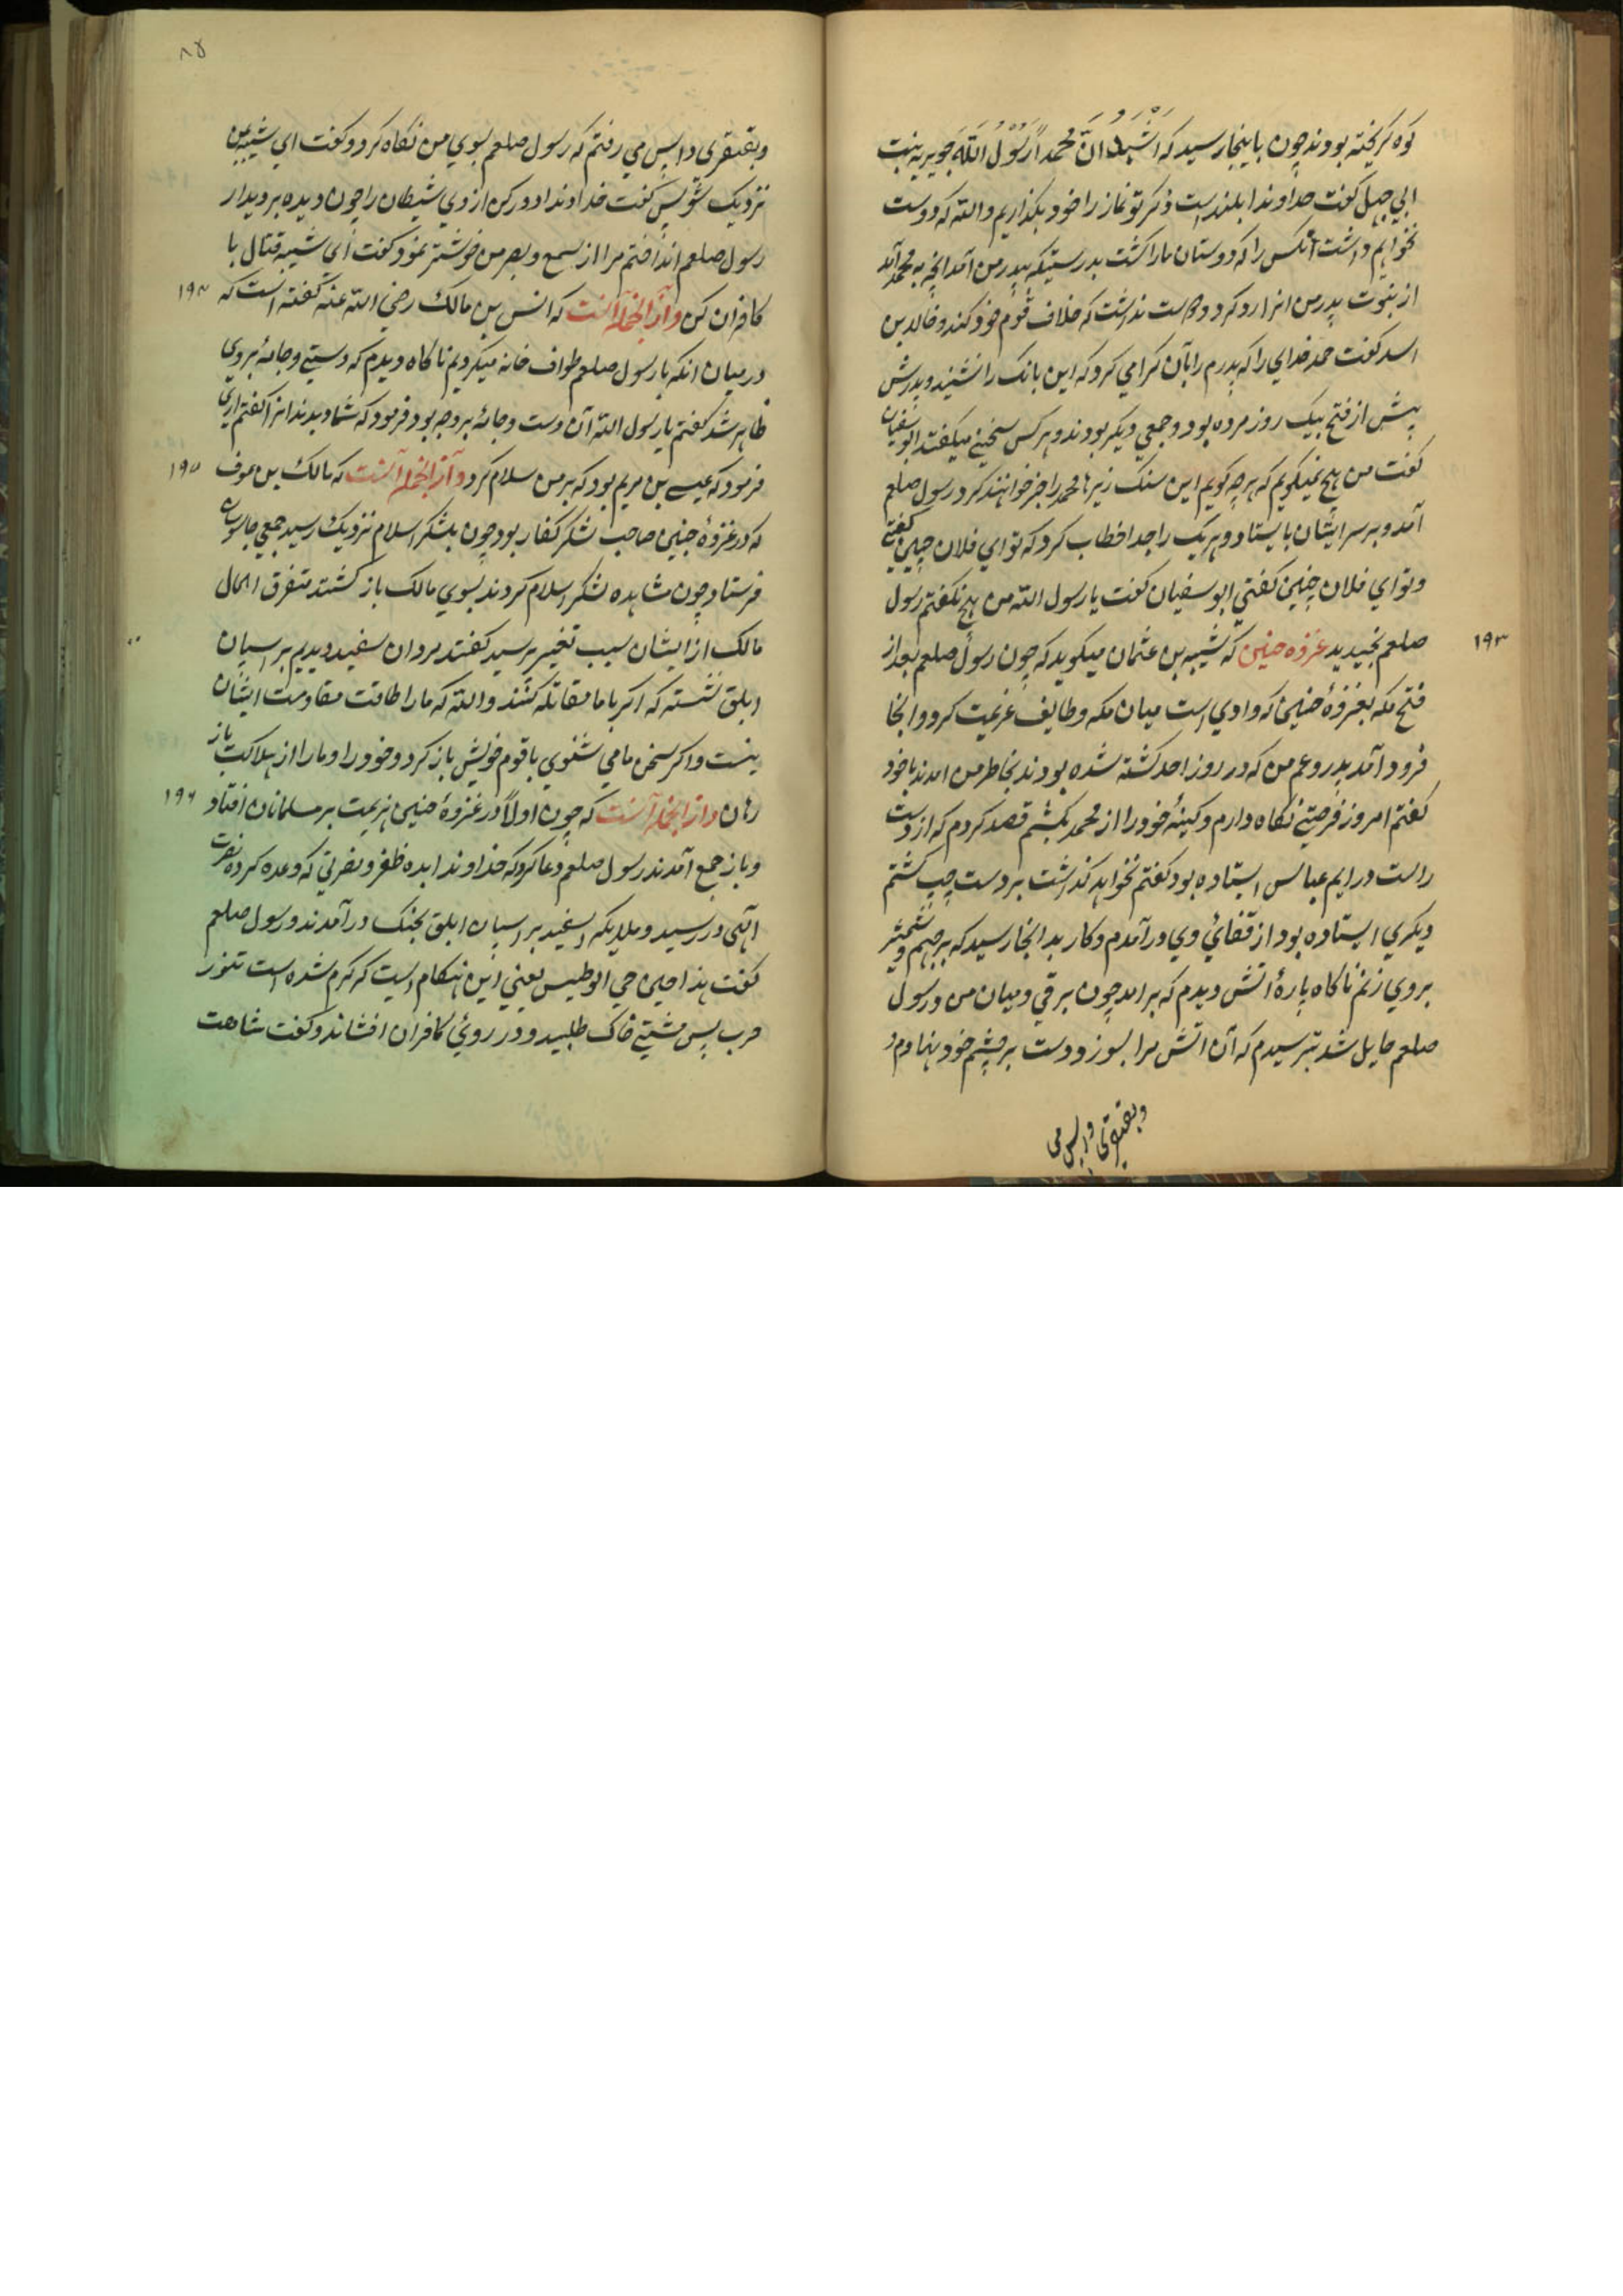 کوه کریخته بودند چون باینجا رسید که اشهد ان محمدا رسول الله جویریه بنت
ابی جهل کفت خداوندا بلندست ذکر تو نماز را خود بکذاریم والله که دوست
نخواهیم داشت آنکس را که دوستان ما را کشت بدرستیکه پدر من آمد انچه به محمد آمد
از نبوت پدر من انرا رد کرد و دوست نداشت که خلاف قوم خود کند و خالد بن
اسد کفت حمد خدایرا که پدرم را بآن کرامی کرد که این بانک را نشنید و پدرش
پیش از فتح بیک روز مرده بود و جمعی دیکر بودند و هر کس سخنی میکفتند ابوسفیان
کفت من هیچ نمیکویم که هر چه کویم این سنک ریزها محمد را خبر خواهند کرد رسول صلعم
آمد و بر سر ایشان بایستاد و هر یک را جدا خطاب کرد که تو ای فلان چنین کفتی
و تو ای فلان چنین کفتی ابوسفیان کفت یا رسول الله من هیچ نکفتم رسول
صلعم بخندید غزوه حنین که شیبه بن عثمان میکوید که چون رسول صلعم بعد از
۱۹۳
فتح مکه بغزوۀ حنین که وادی است میان مکه و طایف عزیمت کرد و انجا
فرود آمد پدر و عم من که در روز احد کشته شده بودند بخاطر من امدند با خود
کفتم امروز فرصتی نکاه دارم و کینۀ خود را از محمد بکشم قصد کردم که از دست
راست در ایم عباس ایستاده بود کفتم نخواهد کذاشت بر دست چپ کشتم
دیکری ایستاده بود از قفائ وی در آمدم و کار بدانجا رسید که برجهم و شمشیر
بروی زنم ناکاه پارۀ اتش دیدم که برامد چون برقی و میان من و رسول
صلعم حایل شد بترسیدم که آن اتش مرا بسوزد و دست بر چشم خود نهادم و
وبقهقری واپس می
۸۵
وبقهقری واپس می رفتم که رسول صلعم بسوی من نکاه کرد و کفت ای شیبه بمن
نزدیک شو پس کفت خداوندا دور کن از وی شیطان را چون دیده بر دیدار
رسول صلعم انداختم مرا از سمع و بصر من خوشتر نمود کفت ای شیبه قتال با
کافران کن و از انجمله آنست که انس بن مالک رضی الله عنه کفته است که
۱۹۴
در میان انکه با رسول صلعم طواف خانه میکردیم ناکاه دیدم که دستی و جامۀ بروی
ظاهر شد کفتم یا رسول الله آن دست و جامۀ بر وجه بود فرمود که شما دیدند انرا کفتم اری
فرمود که عیسی بن مریم بود که بر من سلام کرد و از انجمله آنست که مالک بن عوف
۱۹۵
که در غزوۀ حنین صاحب لشکر کفار بود چون بلشکر اسلام نزدیک رسید جمعی جاسوسان
فرستاد چون مشاهده لشکر اسلام کردند بسوی مالک باز کشتند متفرق الحال
مالک از ایشان سبب تغییر پرسید کفتند مردان سفید دیدیم بر اسبان
ابلق نشسته که اکر با ما مقاتله کنند والله که ما را طاقت مقاومت ایشان
نیست و اکر سخن ما می شنوی با قوم خویش باز کرد و خود را و ما را از هلاکت باز
رهان و از انجمله آنست که چون اولا در غزوۀ حنین هزیمت بر مسلمانان افتاد
۱۹۶
و باز جمع آمدند رسول صلعم دعا کرد که خداوندا بده ظفر و نصرتی که وعده کرده نصرت
الهی در رسید و ملایکه سفید بر اسبان ابلق بجنک در آمدند و رسول صلعم
کفت هذا حین حمی الوطیس یعنی این هنکام است که کرم شده است تنور
حرب پس مشتی خاک طلبید و در روئ کافران افشاند و کفت شاهت